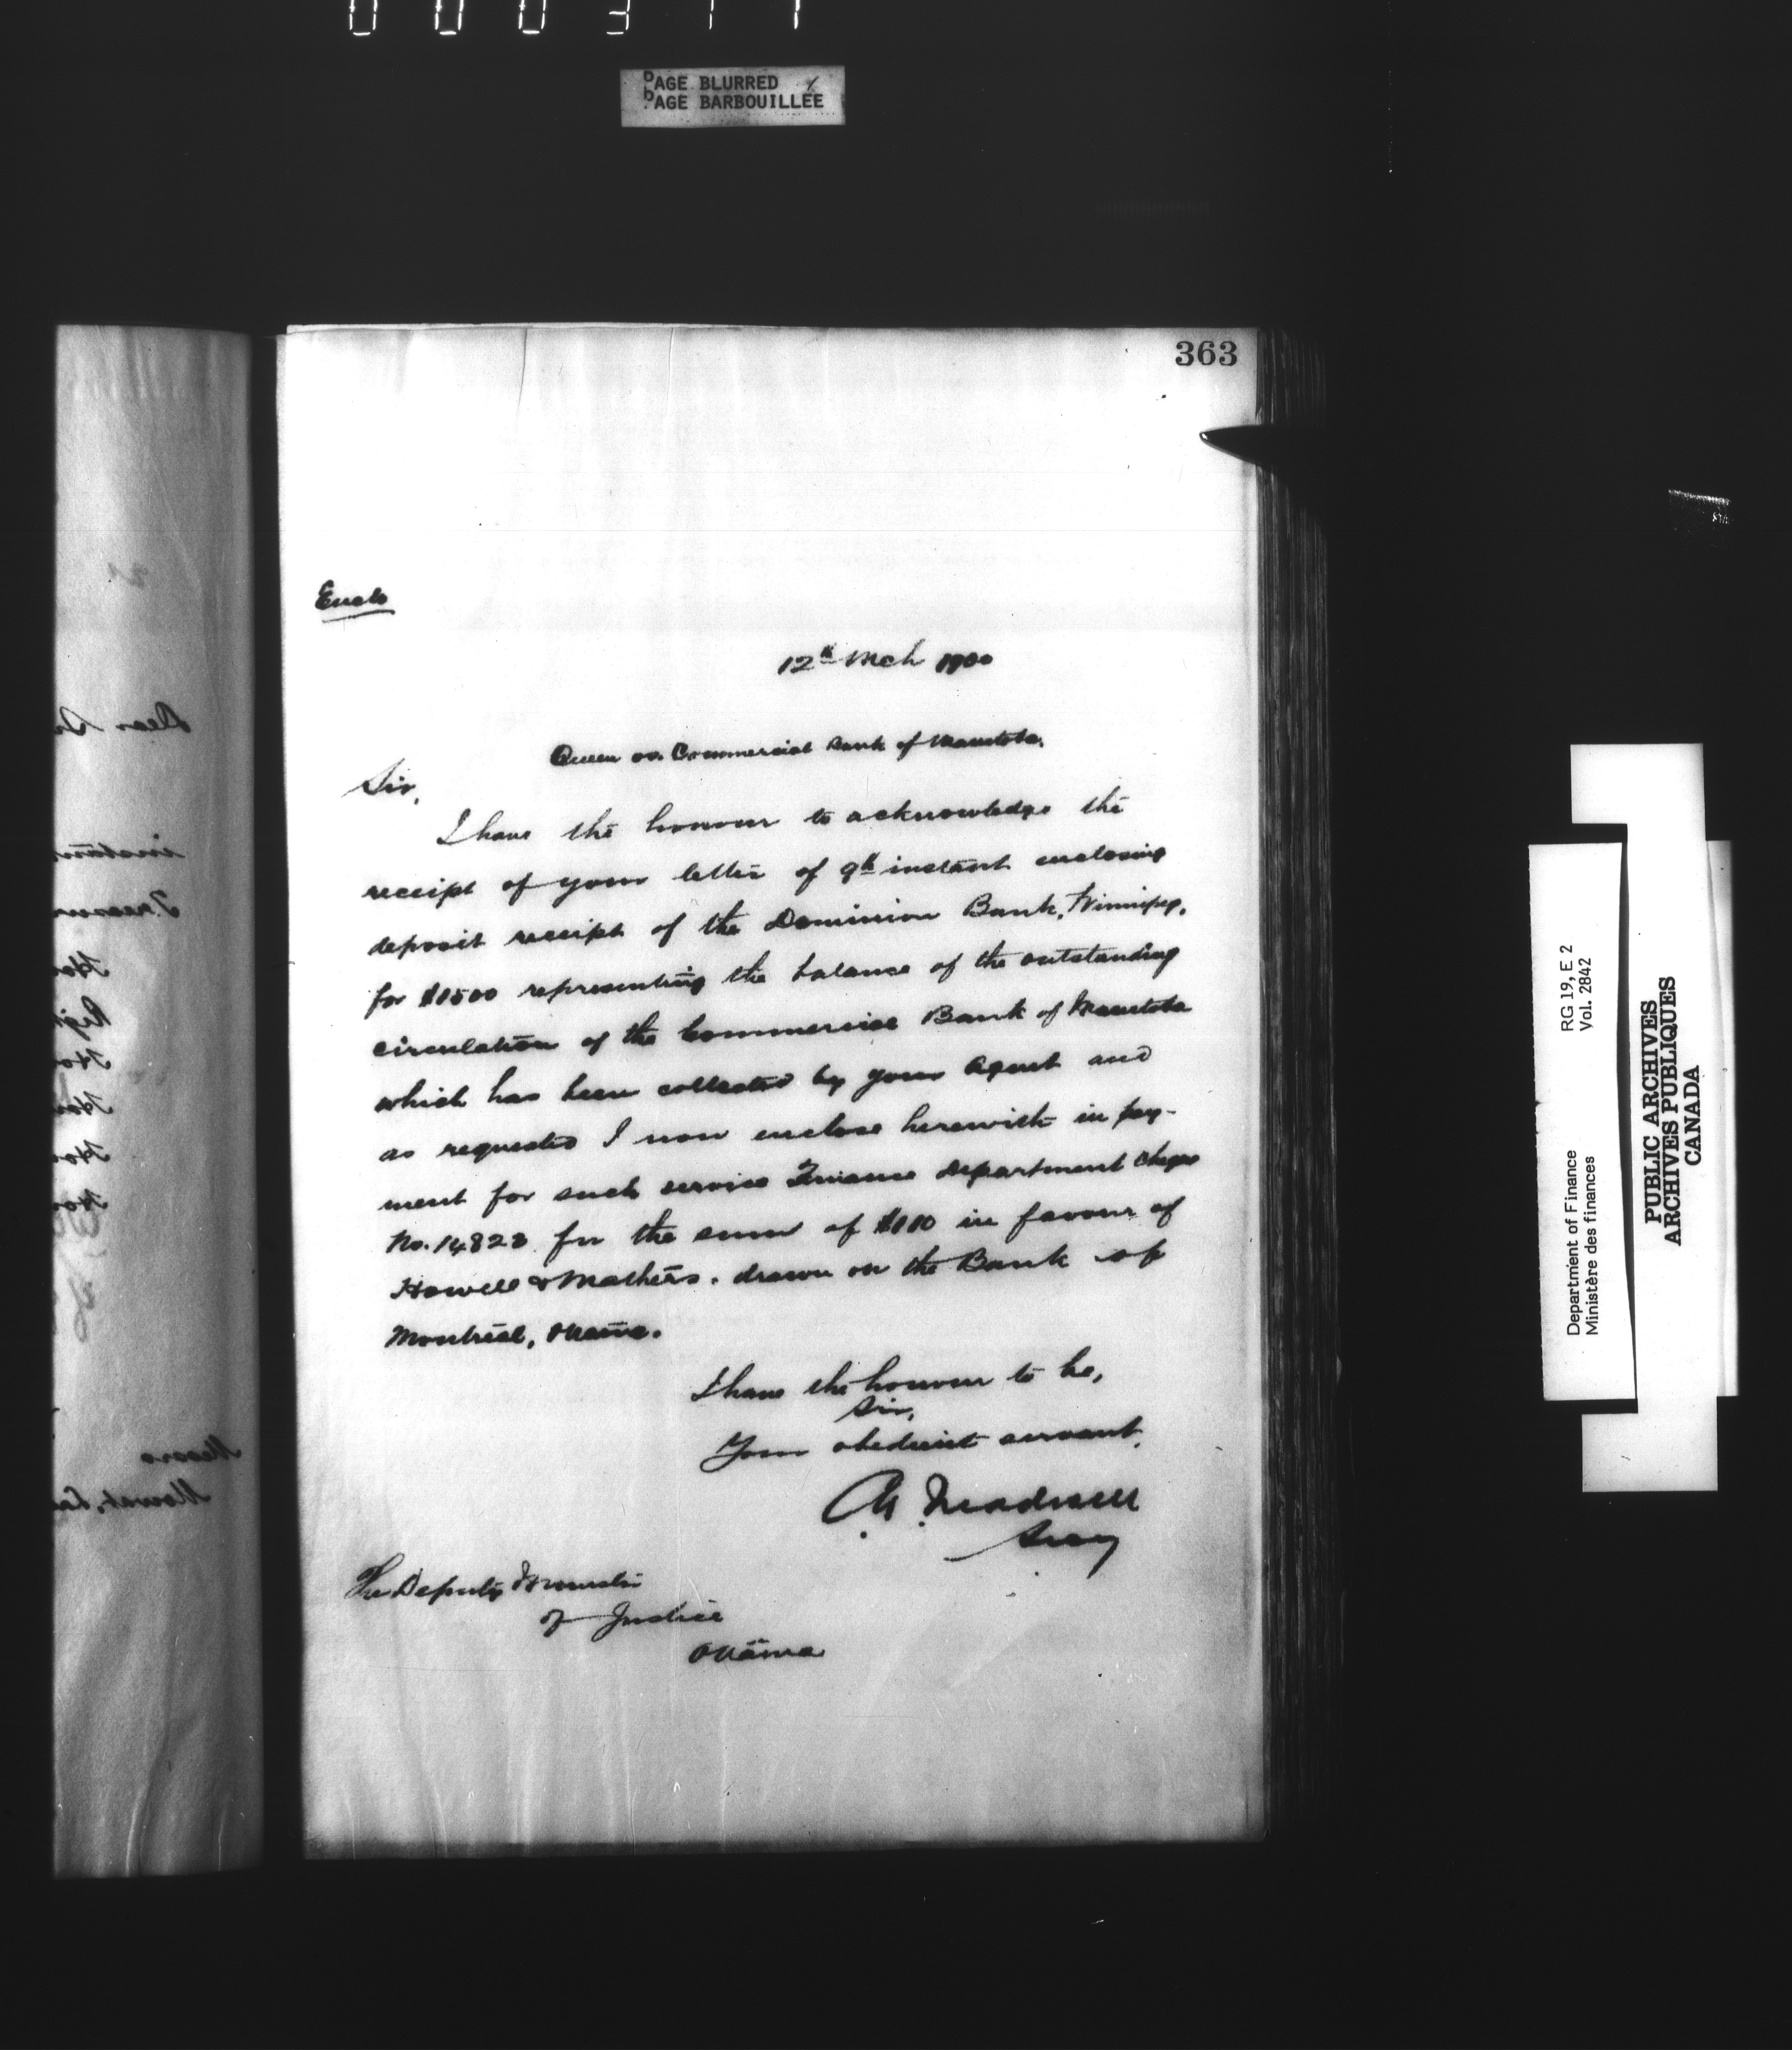 PAGE BLURRED
PAGE BARBOUILLÉE
363
Enclo
12th Mch 1900
Queen vs. Commercial Bank of Manitoba.
Sir,
I have the honour to acknowledge the
receipt of your letter of 9th instant enclosing
deposit receipt of the Dominion Bank, Winnipeg,
for representing the balance of the outstanding
circulation of the Commercial Bank of Manitoba
which has been collected by your Agent and
as requested I now enclose herewith in pay-
ment for such service Finance Department cheque
No. 14823 for the sum of in favour of
Howell & Mathers. drawn on the Bank of
Montreal, Ottawa.
I have the honour to be,
Sir,
Your obedient servant,
The Deputy Minister
of Justice
Ottawa
Dear
instan
Messrs
Mowat, La
Department of Finance RG 19, E 2
Ministère des finances Vol. 2842
PUBLIC ARCHIVES
ARCHIVES PUBLIQUES
CANADA